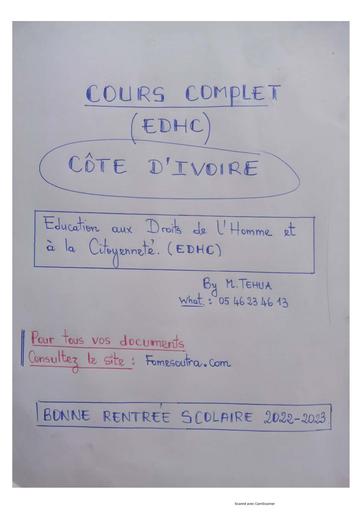 COURS COMPLET
(EDHC)
CÔTE D'IVOIRE
Education aux Droits de l'Homme et
à la Citoyenneté. (EDHC)
By M. TEHUA
What : 05 46 23 46 13
Pour tous vos documents
Consultez le site : Fomesoutra.com
BONNE RENTRÉE SCOLAIRE 2022-2023
Scanned avec CamScanner